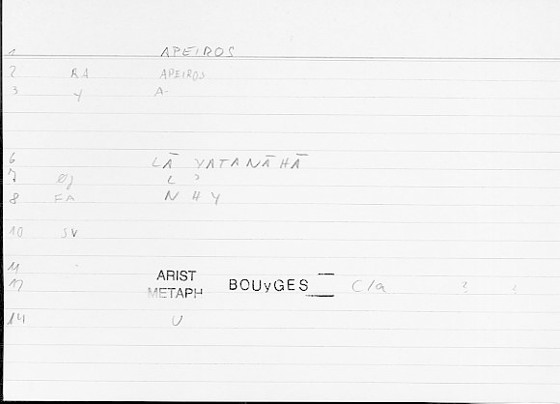 1 APEIROS
2 RA APEIROS
3 Y A-
6 LĀ YATANĀHĀ
7 L
8 FA N H Y
10 SV
11 ARIST
12 METAPH BOUyGES C/a
14 U